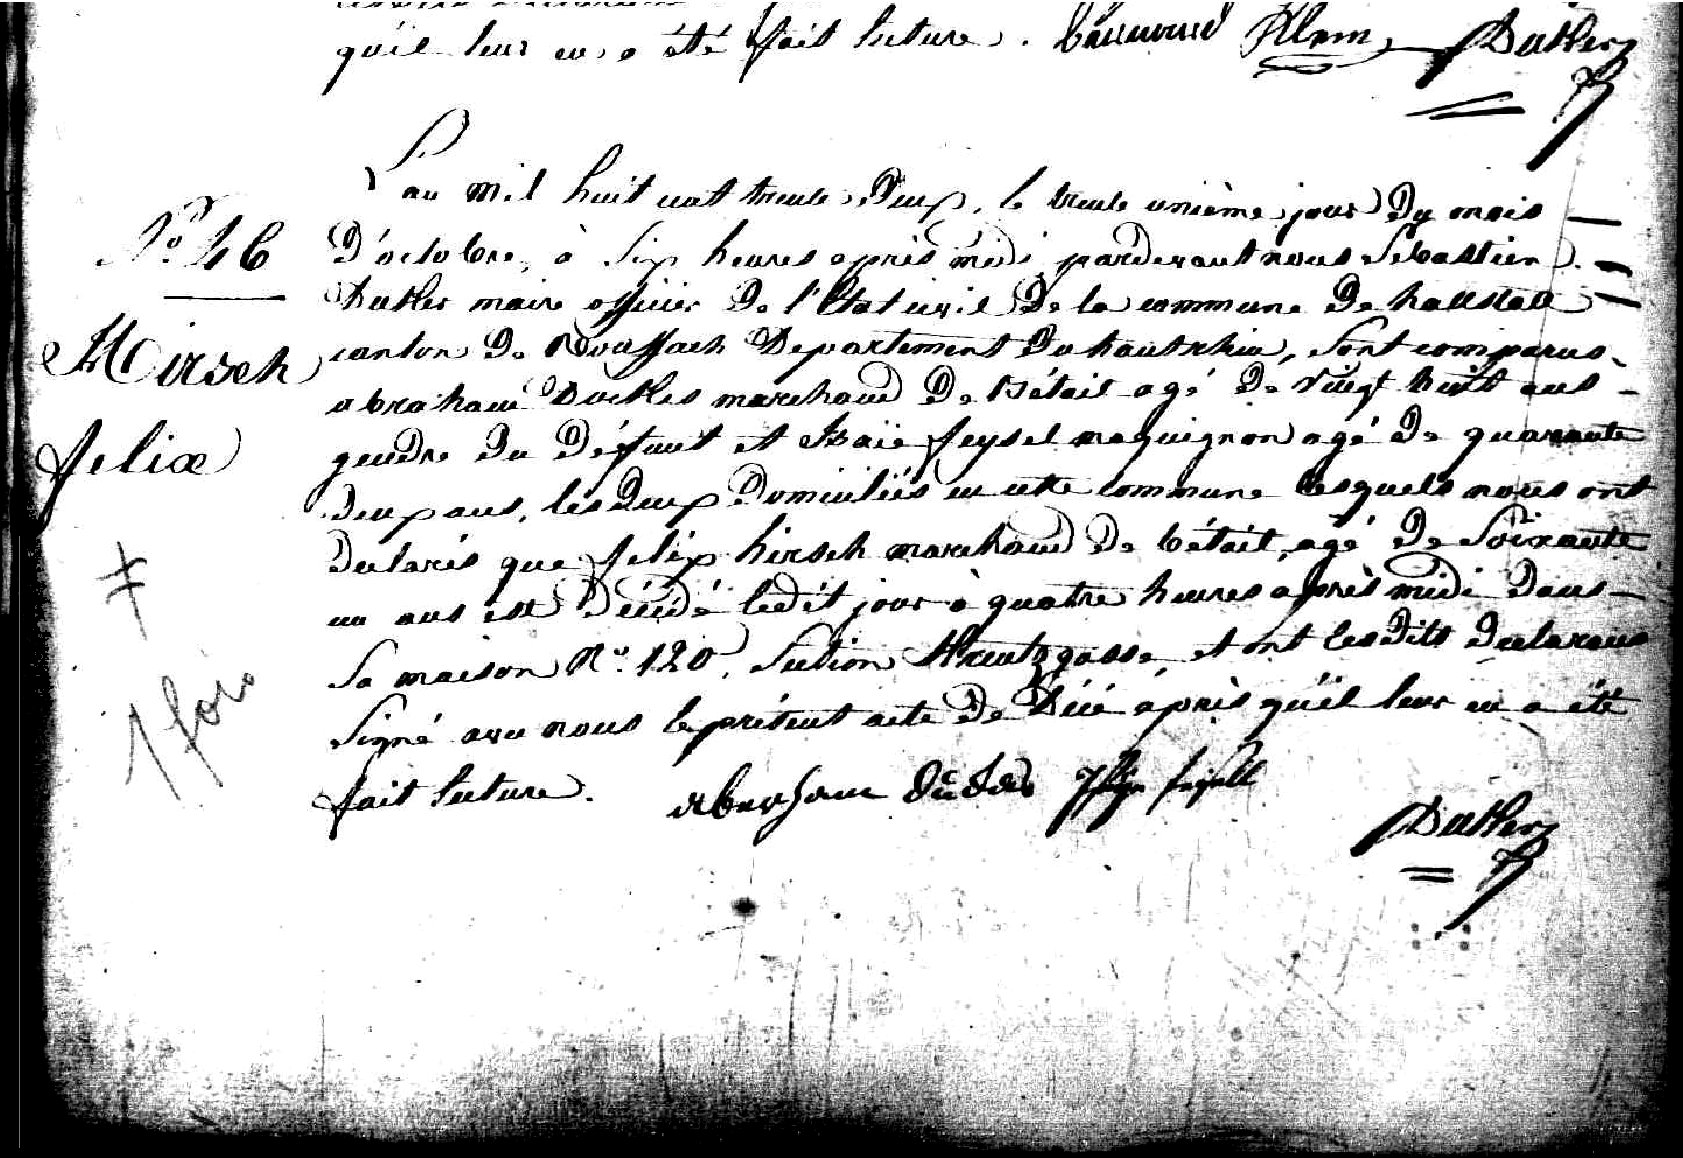 qu'il leur en a été fait lecture. Klem Dutler
L'an mil huit cent trente Deux, le trente unième jour Du mois
N.° 46
D'octobre, à Six heures après midi pardevant nous Sebastien
Dutler maire officier De l'Etat civil De la commune De hattstatt
Hirsch
canton De Rouffach Departement Du hautrhin, Sont comparus
abraham marchand De Bétail agé De vingt huit ans
Felix
gendre Du Défunt et Isaïe feysel maquignon agé De quarante
Deux ans, les Deux Domiciliés en cette commune lesquels nous ont
Declarés que felix hirsch marchand De bétail, agé De Soixante
un ans est Décédé ledit jour à quatre heures après midi Dans
Sa maison N.° 120, Section Kreutzgasse, et ont lesdits Declarans
Signé avec nous le présent acte De Décé après qu'il leur en a été
fait lecture.
Dutler